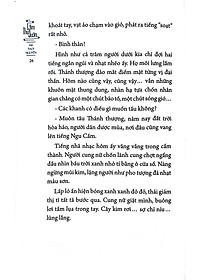 khoát tay, vạt áo chạm vào gió, phát ra tiếng "soạt"
rất nhỏ.
- Bình thân!
Hình như cả trăm người dưới kia chỉ đợi hai
tiếng ngắn ngủi và nhạt nhẽo ấy. Họ mới lưng lắm
rồi. Thánh thượng đảo mắt điểm mặt từng vị đại
thần. Hôm nay cũng chẳng có gì... vẫn những
khuôn mặt thung dung, nhàn hạ tựa chốn nhân
gian chẳng có một chút bão tố, một chút sóng gió...
- Các khanh có điều gì muốn tấu không?
- Muôn tâu Thánh thượng, năm nay đất trời
hòa hảo, người dân được mùa, nơi đâu cũng vang
lên tiếng Ngu Cầm.
Tiếng nhã nhạc hôm ấy văng vẳng trong cấm
thành. Người cung nữ chốn lãnh cung chợt ngẩng
đầu nhìn bầu trời nhỏ tí ti bằng ô cửa sổ. Nàng
ngừng mũi kim, lắng nghe như pho tượng đã nhạt
màu sơn.
Lấp ló ẩn hiện bóng xanh xanh đỏ đỏ, thái giám
thị tì tất tả bước qua. Cung nữ giật mình, buông
lơi tấm lụa trong tay. Cây kim rơi... sợ chỉ níu...
lủng lẳng.
26